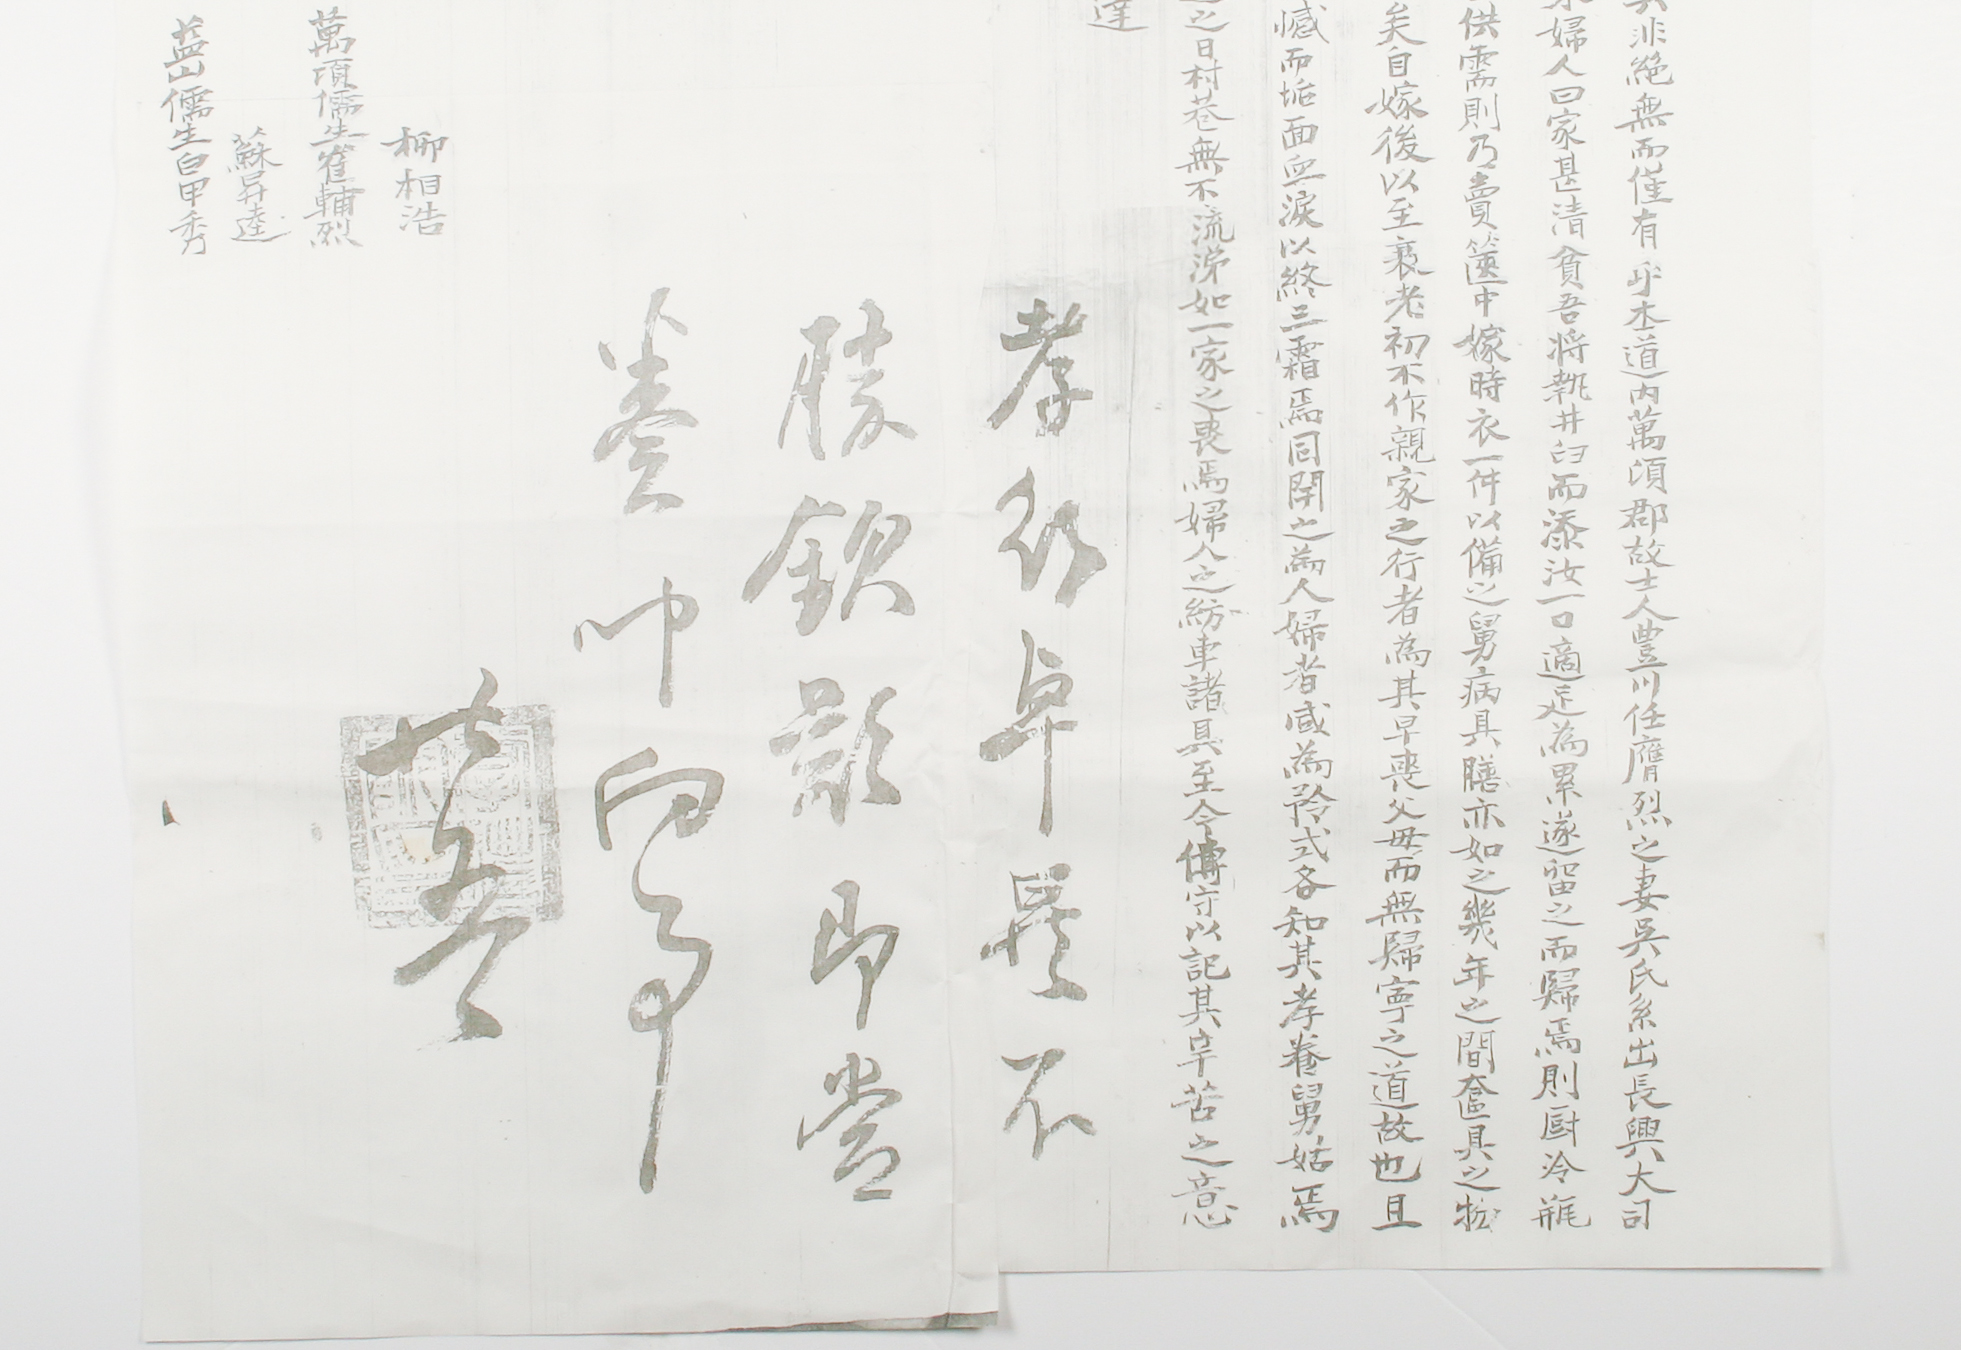 非絶無而僅有乎本道内萬頃郡故士人豊川任膺烈之妻吳氏系出長興大司
婦人曰家甚清貧吾將執井臼而添汝一口適足為累遂留之而歸焉則厨冷瓶
供需則乃賣篋中嫁時衣一件以備之舅病具膳亦如之幾年之間奩具之
矣自嫁後以至衰老初不作親家之行者為其早喪父母而無歸寧之道故也且
憾而垢面血淚以終三霜焉同閈之為人婦者咸為矜式各知其孝養舅姑焉
之日村巷無不流涕如一家之喪焉婦人之紡車諸具至今傳守以記其辛苦之意
達
孝行卓異不
勝欽歎即當
向事
柳相浩
萬頃儒生崔輔烈
蘇昇逵
益山儒生白甲秀